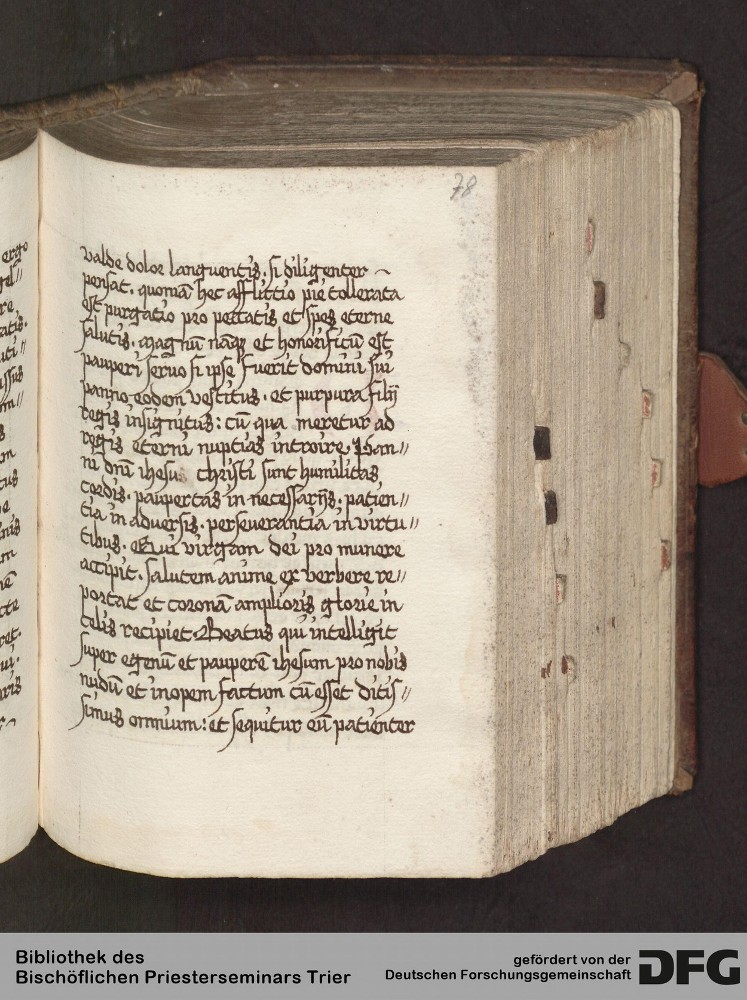 78
valde dolor languentis. si diligenter
pensat. quoniā hec afflictio pie tollerata
est purgatio pro peccatis et spes eterne
salutis. magnū nāqꝫ et honorificū est
pauperi seruo si ipse fuerit domini sui
panno eodem vestitus. et purpura filij
regis insignitus: cū qua meretur ad
regis eterni nuptias introire. Pan//
ni dnī ihesu christi sunt humilitas
cordis. paupertas in necessarijs. patien//
tia in aduersis. perseuerantia in virtu//
tibus. Qui virgam dei pro munere
accipit. salutem anime ex verbere re//
portat et coronā amplioris glorie in
celis recipiet Beatus qui intelligit
super egenū et pauperē ihesum pro nobis
nudū et inopem factum cū esset ditis//
simus omnium: et sequitur eū patienter
ergo
Bibliothek des
Bischöflichen Priesterseminars Trier
gefördert von der
Deutschen Forschungsgemeinschaft
DFG